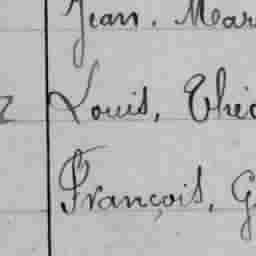 Jean, Mar
Louis, Théo
François, G